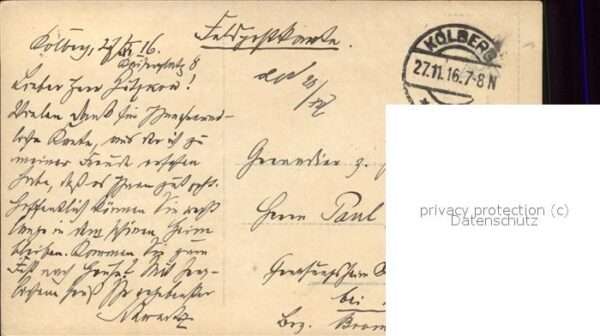 Kolberg, 27/XI. 16.
Kaiserplatz 8
Lieber Herr
Vielen Dank für Ihre freund-
liche Karte, aus der ich zu
meiner Freude ersehen
habe, daß es Ihnen gut geht.
Hoffentlich können Sie noch
lange in dem schönen Heim
bleiben. Kommen Sie zum
Fest nach Hause? Mit herz-
lichem Gruß Ihr ergebenster
Feldpostkarte.
KOLBERG
27.11.16.7-8 N
Grenadier
Herrn Paul
Genesungsheim
bei
Bez. Brom
privacy protection (c)
Datenschutz